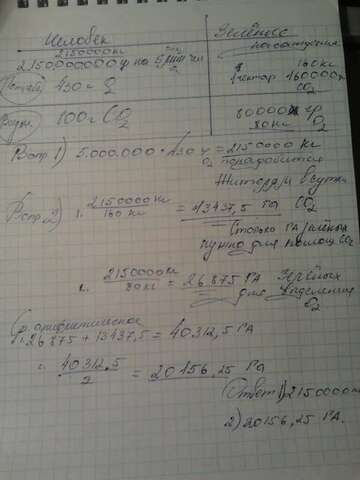 Человек
Зелёные насаждения
2150000кг
2150.000000 гр на 5 млн чел
160 кг
1 гектар 160000 г CO2
430 г O2
800 г CO2
80000 гр
80 кг O2
Вопр. 1) 5.000.000 · 430 г = 2150000 кг
O2 потребится
Жителями в сутки
Вопр. 2) 1. 2150000 кг / 160 кг = 13437,5 га CO2
Столько ГА зелёных
нужно для поглощ CO2
2150000 кг / 80 кг = 26.875 ГА Зелёных
для выделения
O2
Ср. арифметическое
1. 26875 + 13437,5 = 40312,5 ГА
40312,5 / 2 = 20156,25 Га
Ответ 1) 2150000 кг
2) 20156,25 ГА.